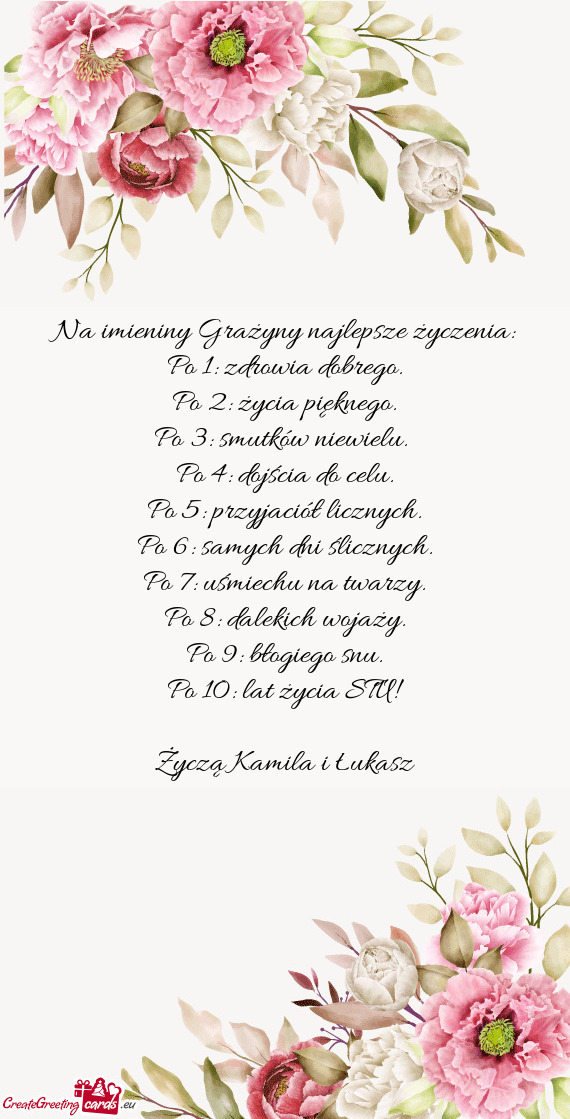 Na imieniny Grażyny najlepsze życzenia:
Po 1: zdrowia dobrego.
Po 2: życia pięknego.
Po 3: smutków niewielu.
Po 4: dojścia do celu.
Po 5: przyjaciół licznych.
Po 6: samych dni ślicznych.
Po 7: uśmiechu na twarzy.
Po 8: dalekich wojaży.
Po 9: błogiego snu.
Po 10: lat życia STU!
Życzą Kamila i Łukasz
CreateGreeting cards .eu